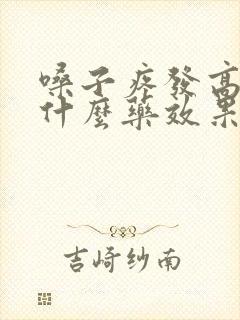 嗓子疼發高
什麼藥效果
吉崎纱南